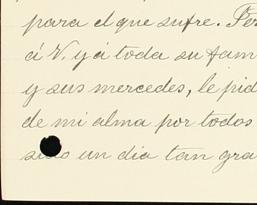 para el que sufre.
á V. y á toda su fam
y sus mercedes, le pid
de mi alma por todos
un dia tan gra